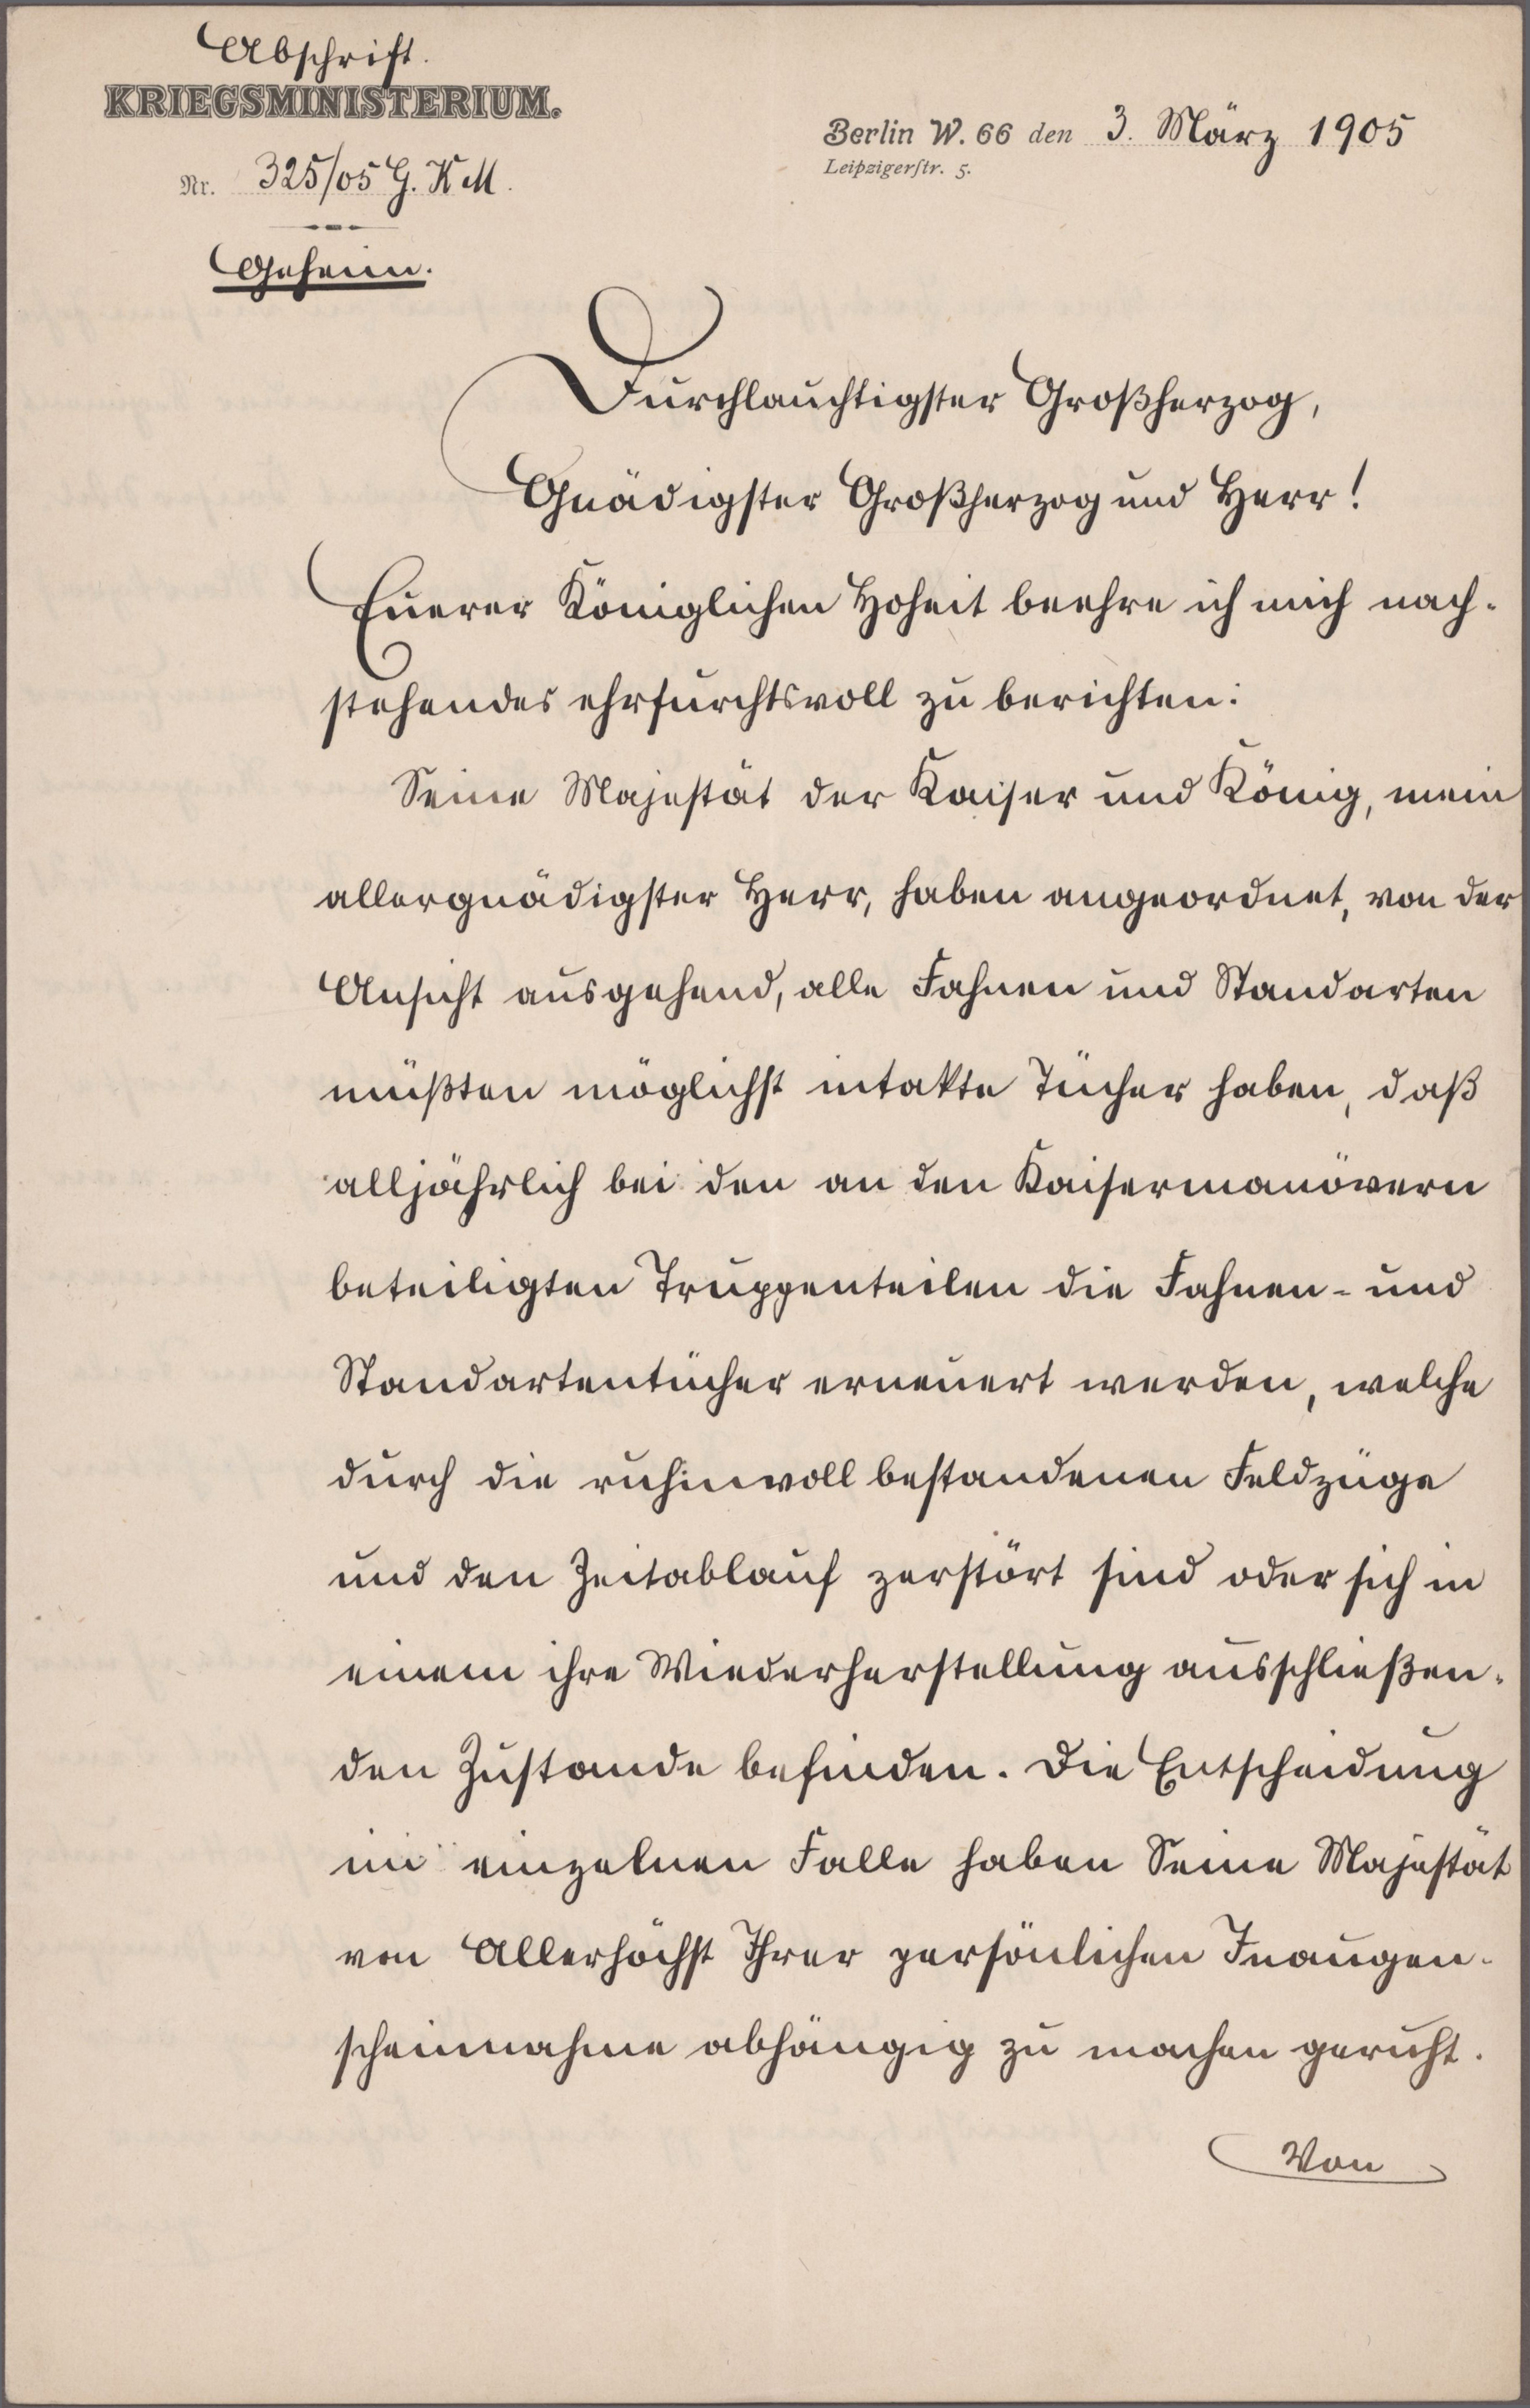 Abschrift.
KRIEGSMINISTERIUM.
Berlin W. 66 den 3. März 1905
Leipzigerstr. 5.
Nr. 325/05 G. K M.
Geheim.
Durchlauchtigster Großherzog,
Gnädigster Großherzog und Herr!
Euerer Königlichen Hoheit beehre ich mich nach-
stehendes ehrfurchtsvoll zu berichten:
Seine Majestät der Kaiser und König, mein
allergnädigster Herr, haben angeordnet, von der
Ansicht ausgehend, alle Fahnen und Standarten
müßten möglichst intakte Tücher haben, daß
alljährlich bei den an den Kaisermanövern
beteiligten Truppenteilen die Fahnen- und
Standartentücher erneuert werden, welche
durch die ruhmvoll bestandenen Feldzüge
und den Zeitablauf zerstört sind oder sich in
einem ihre Wiederherstellung ausschließen-
den Zustande befinden. Die Entscheidung
im einzelnen Falle haben Seine Majestät
von Allerhöchst Ihrer persönlichen Inaugen-
scheinnahme abhängig zu machen geruht.
Von